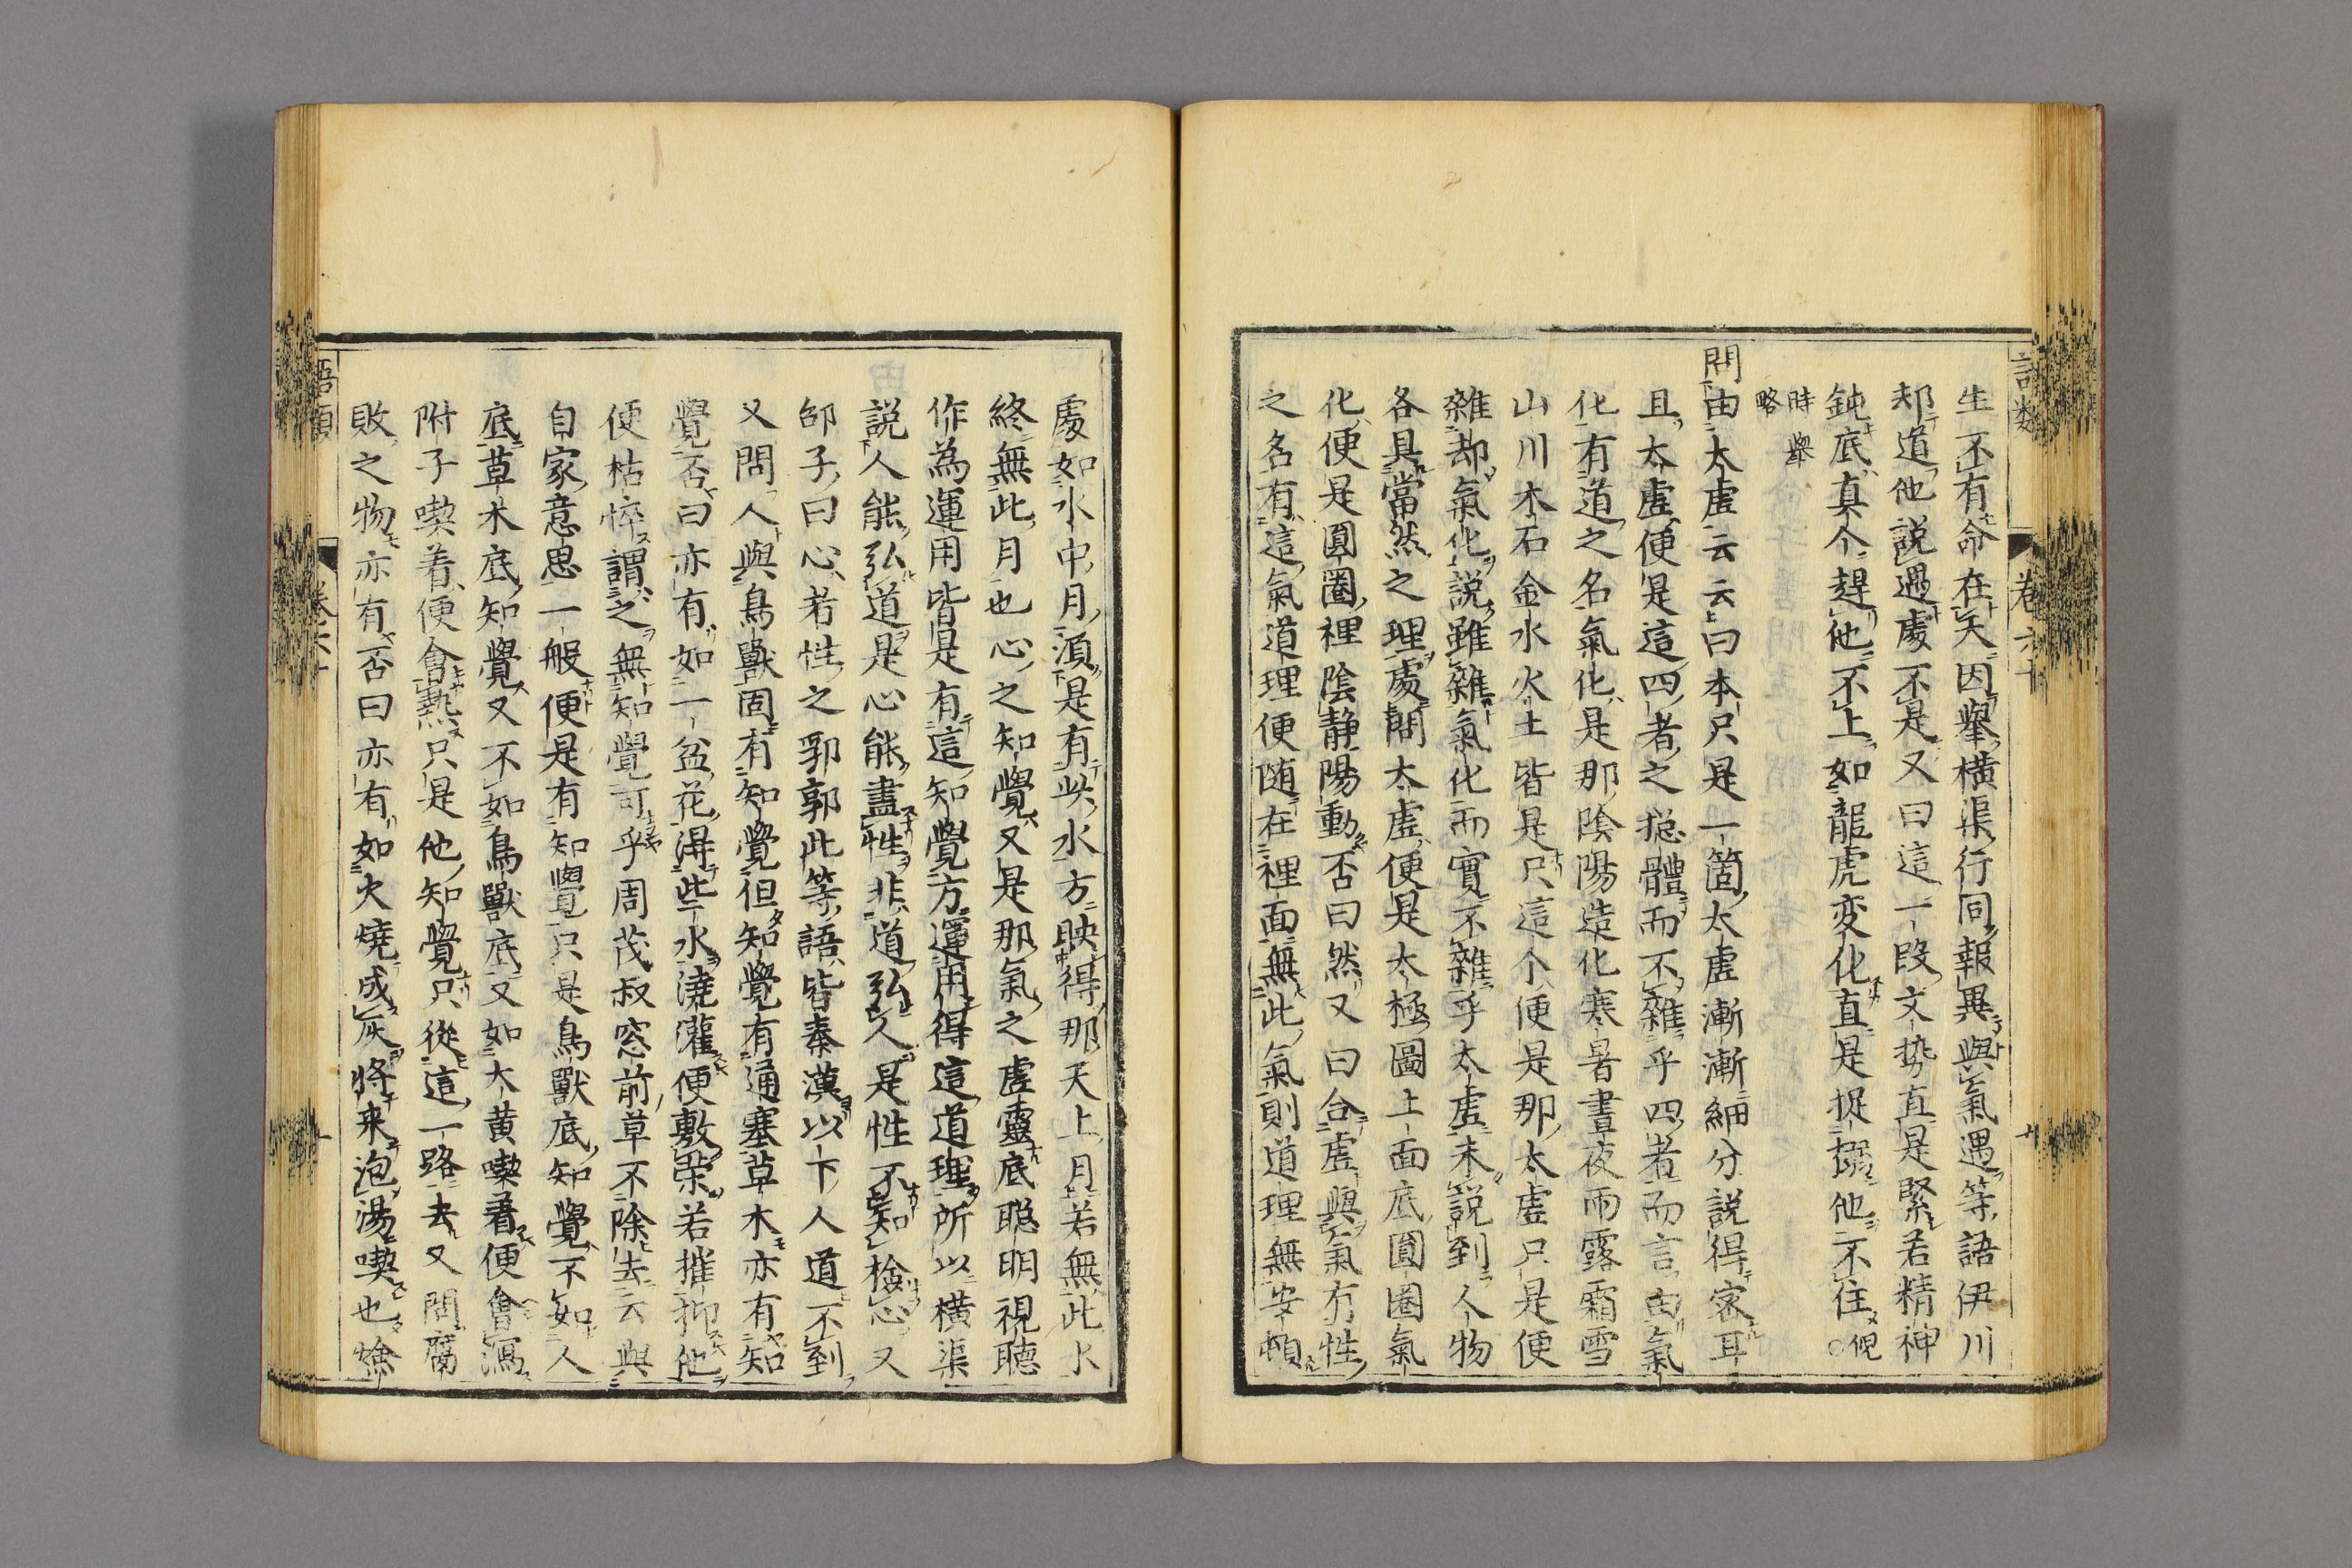 生不有命在天因擧横渠行同報異與氣遇等語伊川
却道他説遇處不是又曰這一段文势直是緊若精神
鈍底真个趕他不上如龍虎変化直是捉搦他不住〇僩
時擧
略
問由太虚云云曰本只是一箇太虚漸漸細分説得密耳
且太虚便是這四者之捴體而不雜乎四者而言由氣
化有道之名氣化是那陰陽造化寒暑晝夜雨露霜雪
山川木石金水火土皆是只這个便是那太虚只是便
雜却氣化説雖雜氣化而實不雜乎太虚未説到人物
各具當然之理處問太虚便是太極圖上面底圓圏氣
化便是圓圏裡陰静陽動否曰然又曰合虚與氣有性
之名有這氣道理便随在裡面無此氣則道理無安頓
處如水中月須是有此水方映得那天上月若無此水
終無此月也心之知覺又是那氣之虚靈底聡明視聴
作為運用皆是有這知覺方運用得這道理所以横渠
説人能弘道是心能盡性非道弘人是性不知檢心又
邵子曰心若性之郛郭此等語皆秦漢以下人道不到
又問人與鳥獸固有知覺但知覺有通塞草木亦有知
覺否曰亦有如一盆花得些水澆灌便敷榮若摧抑他
便枯悴謂之無知覺可乎周茂叔窓前草不除去云與
自家意思一般便是有知覺只是鳥獸底知覺不如人
底草木底知覺又不如鳥獸底又如大黄喫着便會瀉
附子喫着便會熱只是他知覺只從這一路去又問腐
敗之物亦有否曰亦有如火燒成灰將来泡湯喫也燴
語類
卷六十